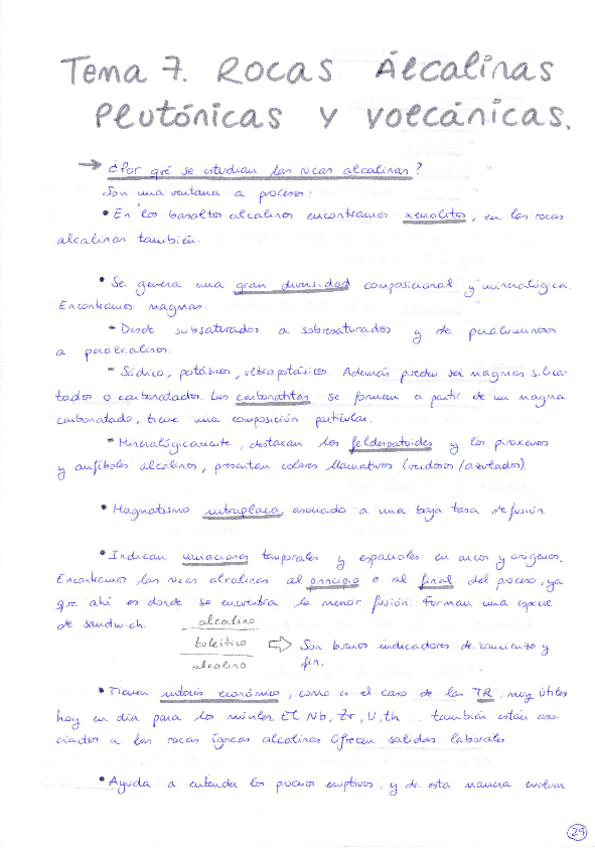 Tema 7. Rocas Alcalinas
Plutónicas y volcánicas.
→ ¿Por qué se estudian las rocas alcalinas?
Son una ventana a procesos:
• En los basaltos alcalinos encontramos xenolitos, en las rocas
alcalinas también.
• Se genera una gran diversidad composicional y mineralógica.
Encontramos magmas.
- Desde subsaturados a sobresaturados y de peraluminosos
a peralcalinos.
- Sódico, potásicos, ultrapotásicos. Además pueden ser magmas silica-
tados o carbonatados. Las carbonatitas se forman a partir de un magma
carbonatado, tiene una composición particular.
- Mineralógicamente, destacan los feldespatoides y los piroxenos
y anfíboles alcalinos, presentan colores llamativos (verdosos/azulados).
• Magmatismo intraplaca, asociado a una baja tasa de fusión
• Indican variaciones temporales y espaciales en arcos y orógenos.
Encontramos las rocas alcalinas al principio o al final del proceso, ya
que ahí es donde se encuentra la menor fusión. Forman una especie
de sandwich.
alcalino
toleítico ⇨ Son buenos indicadores de comienzo y
alcalino fin.
• Tienen interés económico, como es el caso de las TR, muy útiles
hoy en día para los móviles El Nb, Zr, U, th ... también están aso-
ciados a las rocas ígneas alcalinas Ofrecen salidas laborales
• Ayuda a entender los procesos eruptivos, y de esta manera evaluar
29